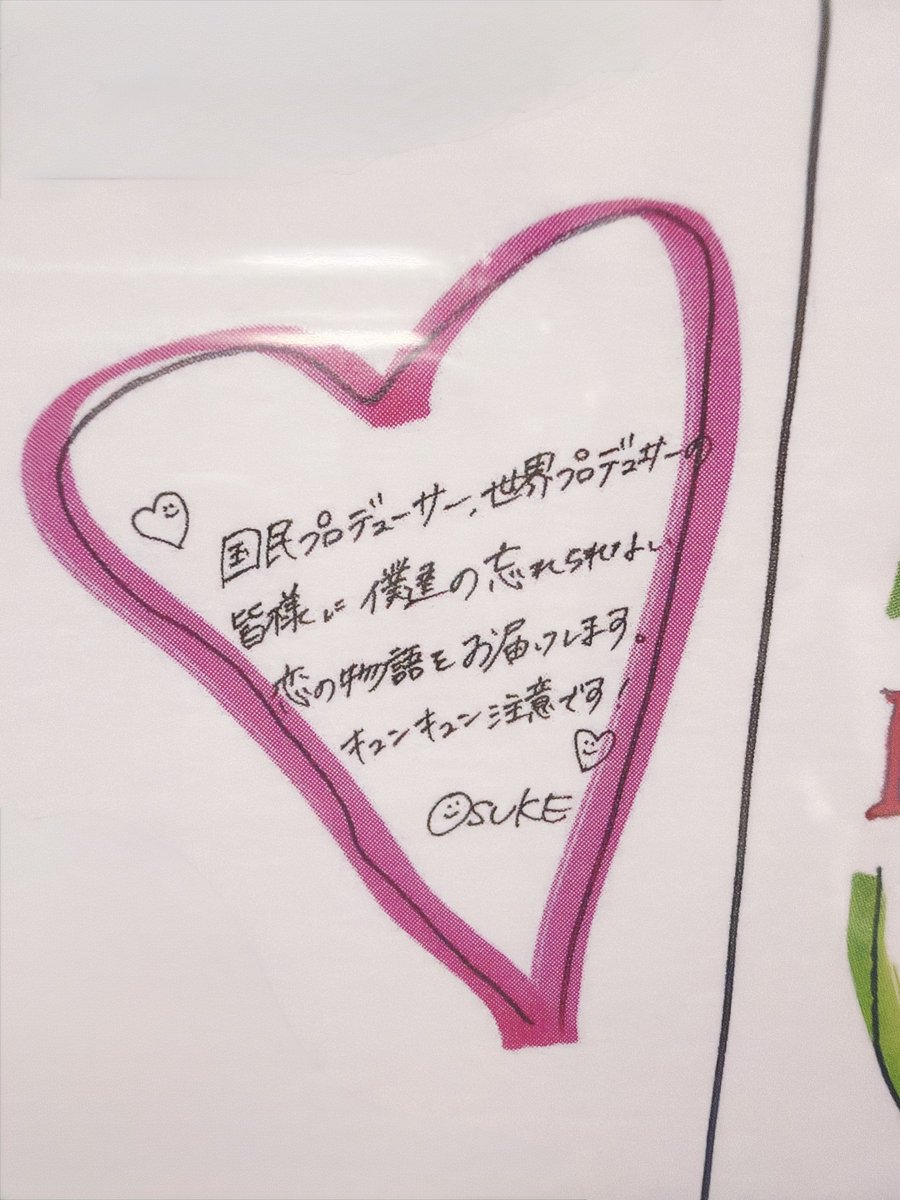 国民プロデューサー、世界プロデューサーの
皆様に僕達の忘れられない
恋の物語をお届けします。
キュンキュン注意です!
OSUKE